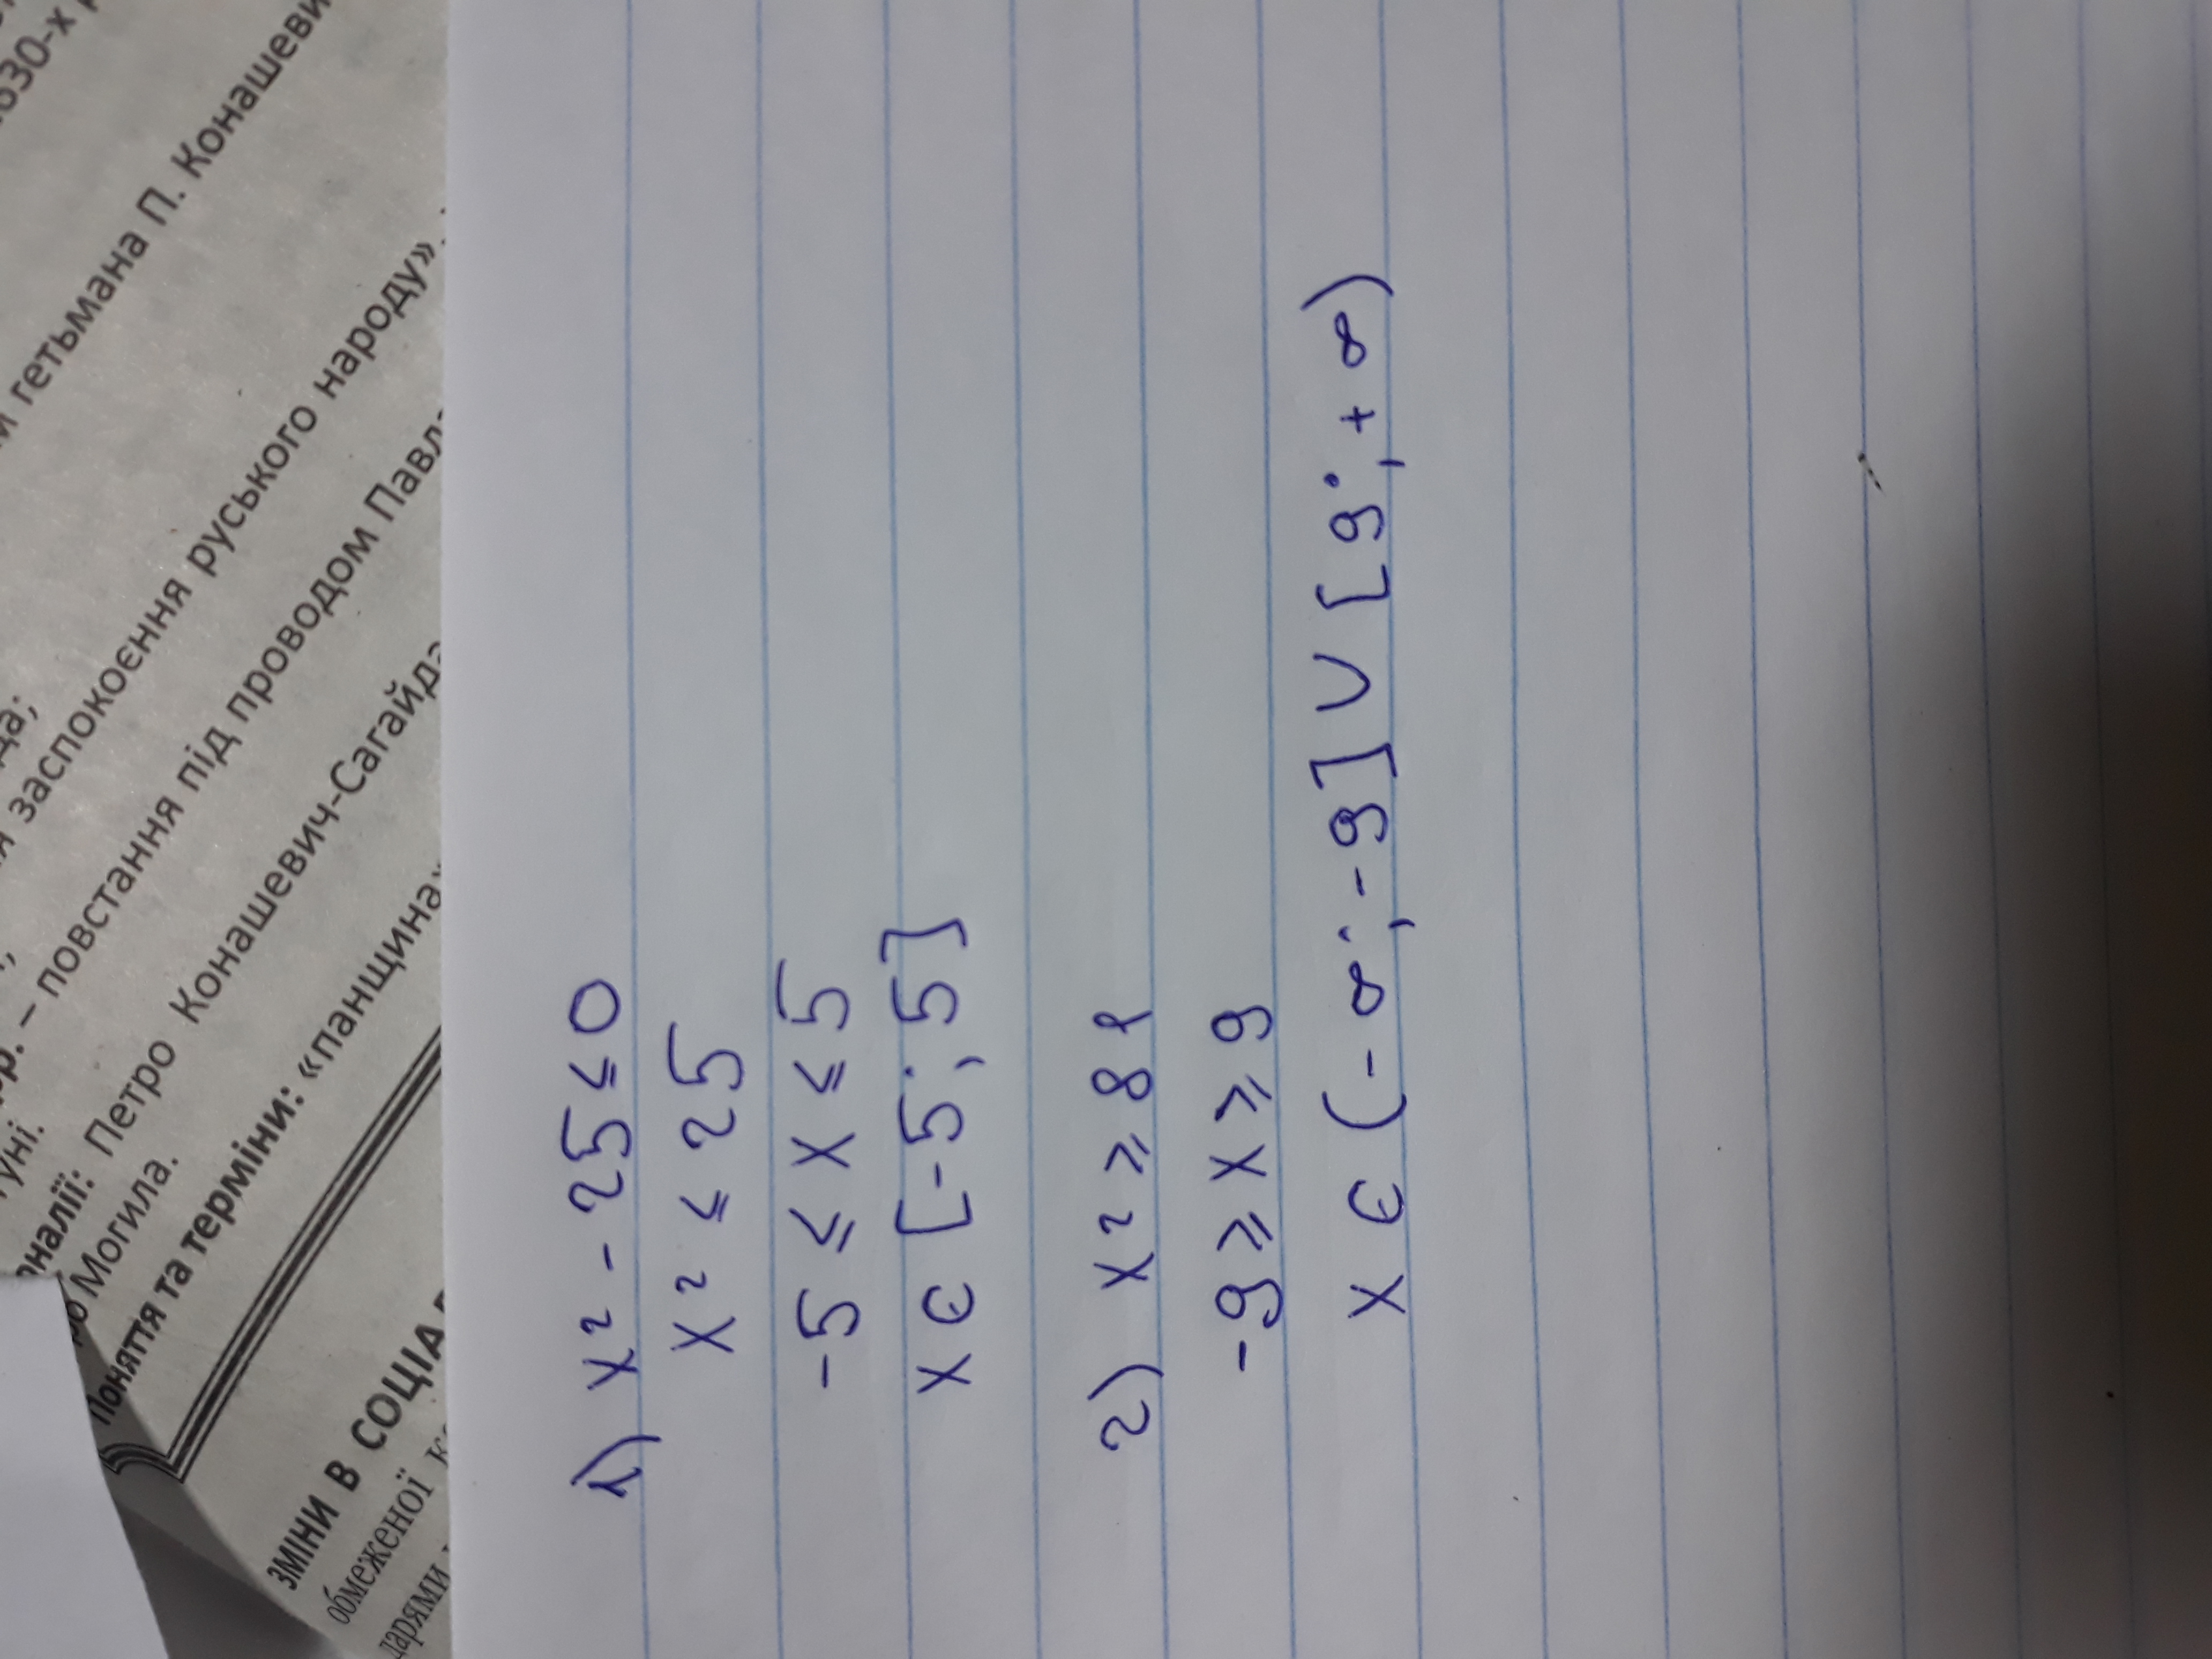 1630-х р
м гетьмана П. Конашеви
да;
я заспокоєння руського народу»
р. – повстання під проводом Павл
уні.
оналії: Петро Конашевич-Сагайда
ро Могила.
Поняття та терміни: «панщина»
ЗМІНИ В СОЦІАЛ
обмеженої к
дарями
1) x² - 25 ≤ 0
x² ≤ 25
-5 ≤ x ≤ 5
x ∈ [-5; 5]
2) x² ≥ 81
-9 ≥ x ≥ 9
x ∈ (-∞; -9] ∪ [9; +∞)